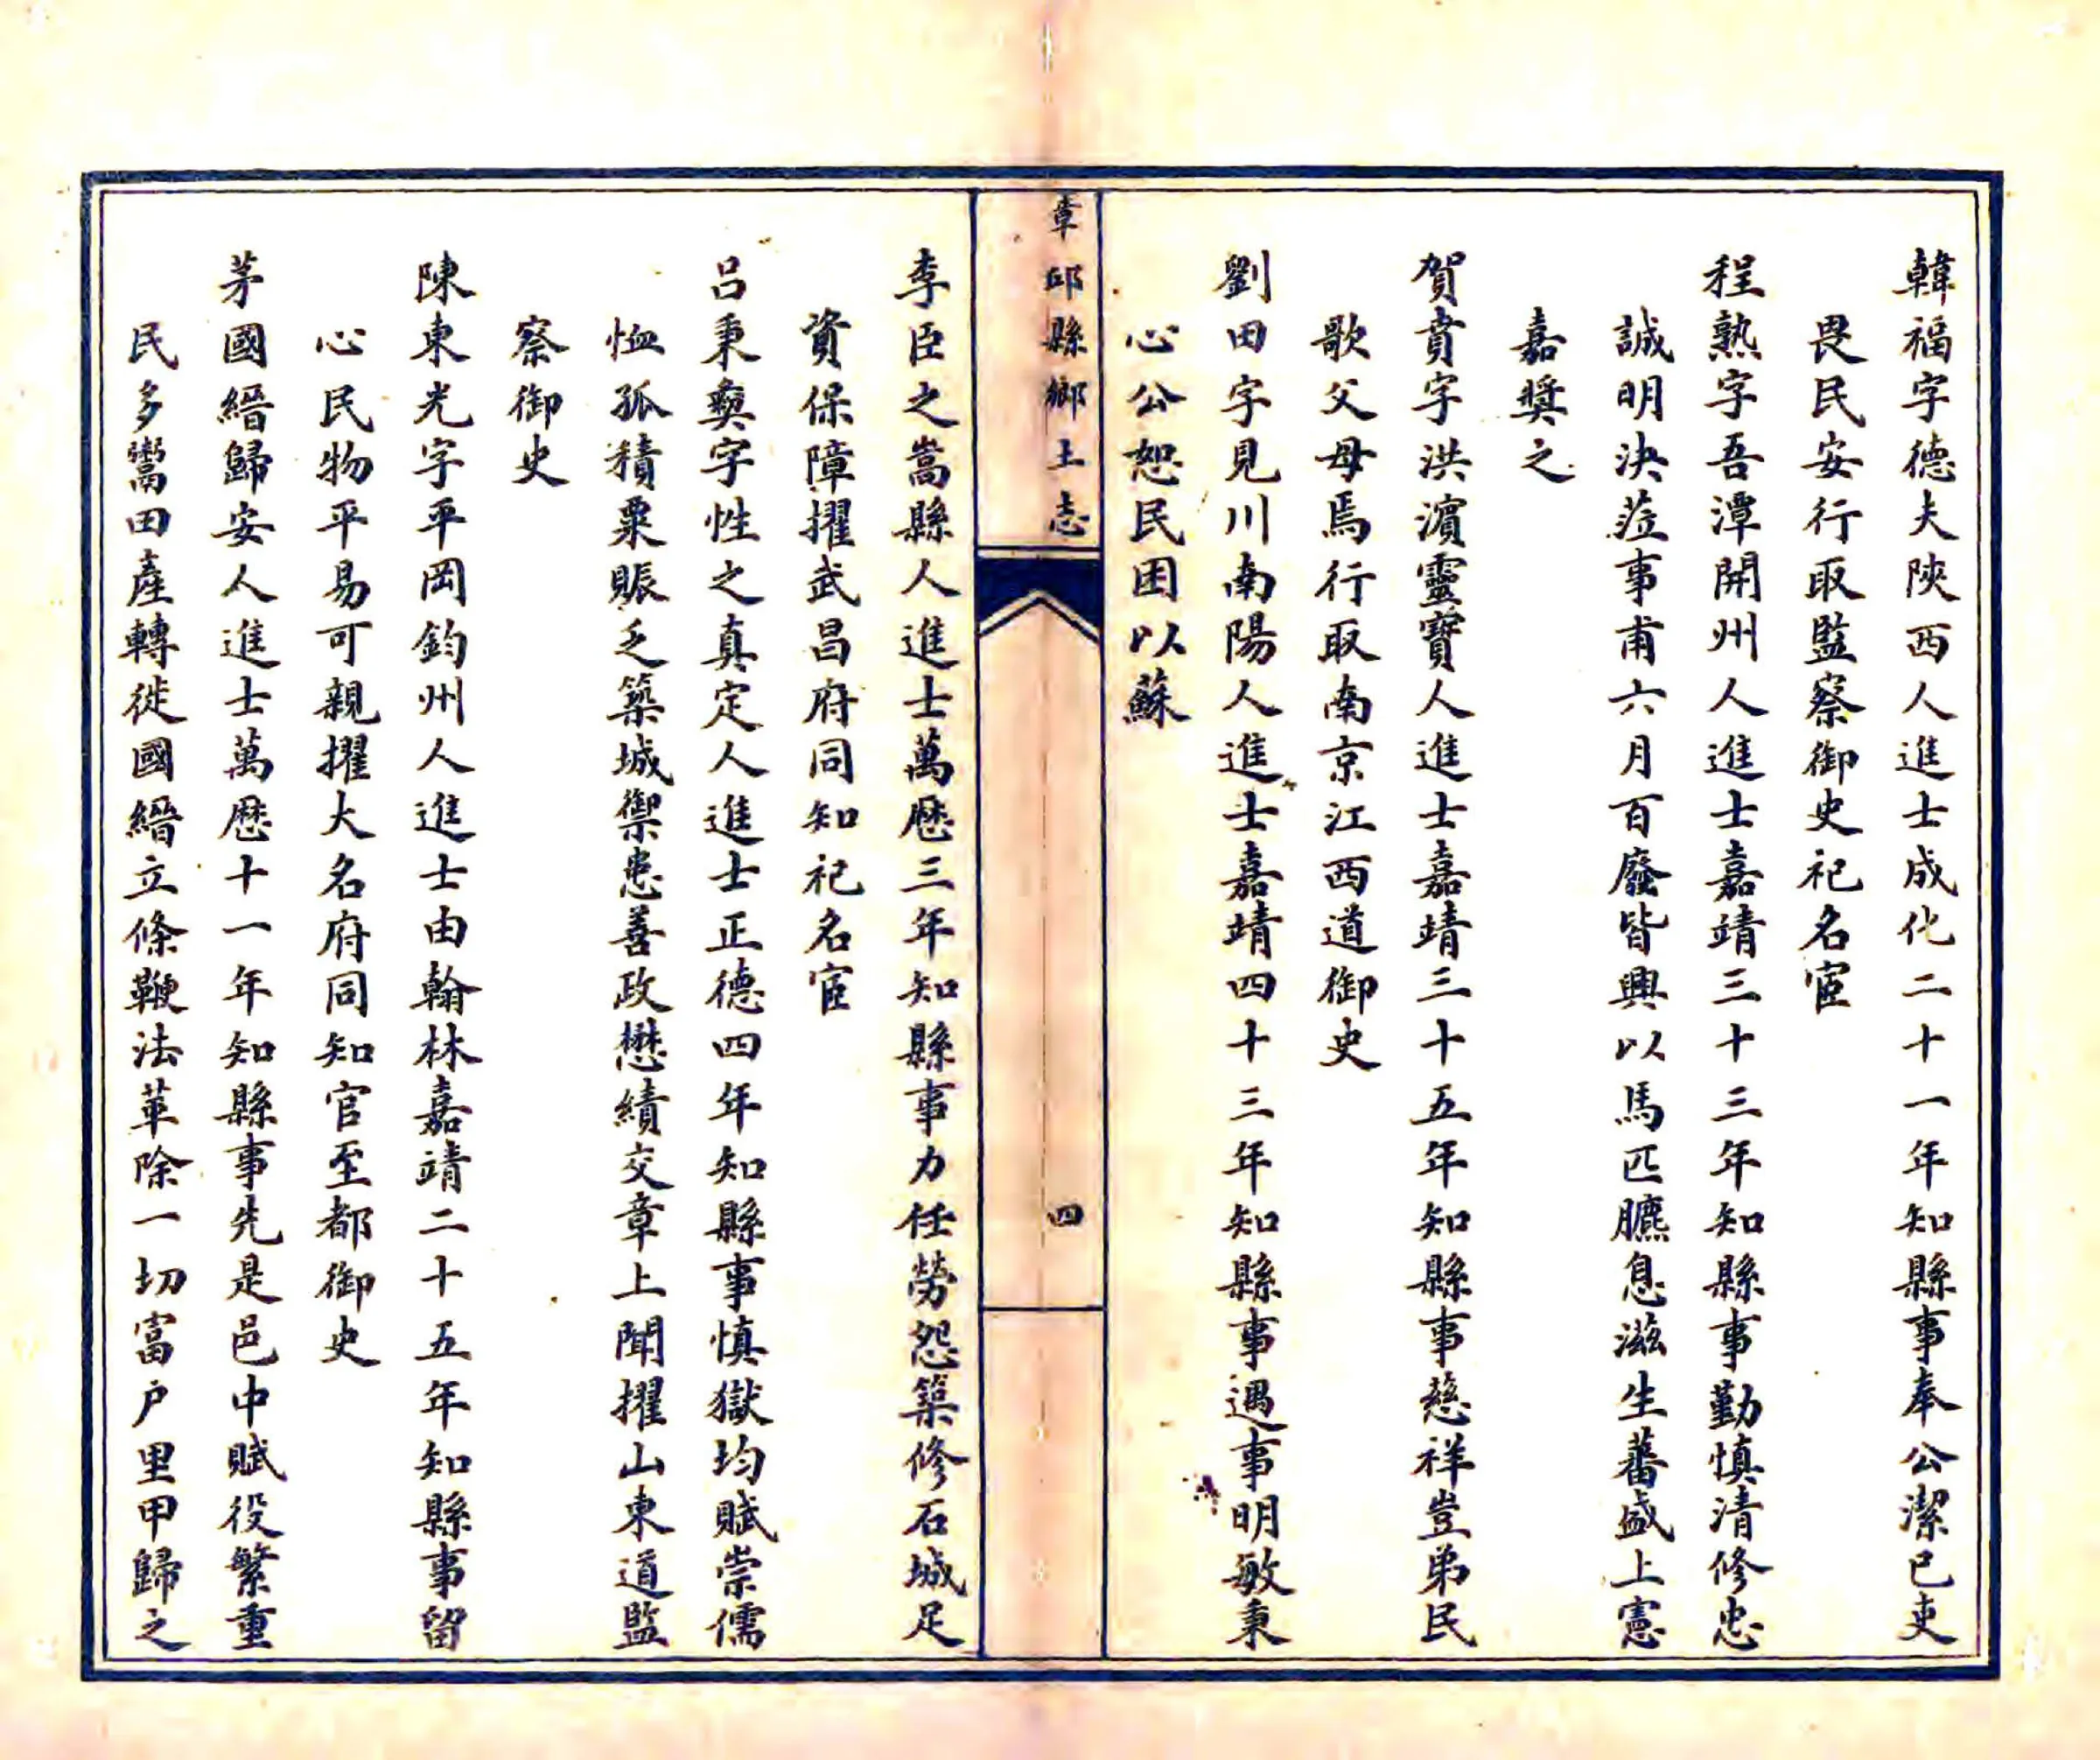 韓福字德夫陝西人進士成化二十一年知縣事奉公潔已吏
畏民安行取監察御史祀名宦
程熟字吾潭開州人進士嘉靖三十三年知縣事勤慎清修忠
誠明決蒞事甫六月百廢皆興以馬匹臕息滋生蕃盛上憲
嘉奬之
賀賁字洪濵靈寶人進士嘉靖三十五年知縣事慈祥豈弟民
歌父母焉行取南京江西道御史
劉田字見川南陽人進士嘉靖四十三年知縣事遇事明敏秉
心公恕民困以蘇
章邱縣鄉土志
四
李臣之嵩縣人進士萬歷三年知縣事力任勞怨築修石城足
資保障擢武昌府同知祀名宦
呂秉彝字性之真定人進士正德四年知縣事慎獄均賦崇儒
恤孤積粟賑乏築城禦患善政懋績交章上聞擢山東道監
察御史
陳東光字平岡鈞州人進士由翰林嘉靖二十五年知縣事留
心民物平易可親擢大名府同知官至都御史
茅國縉歸安人進士萬歷十一年知縣事先是邑中賦役繁重
民多鬻田產轉徙國縉立條鞭法革除一切富户里甲歸之